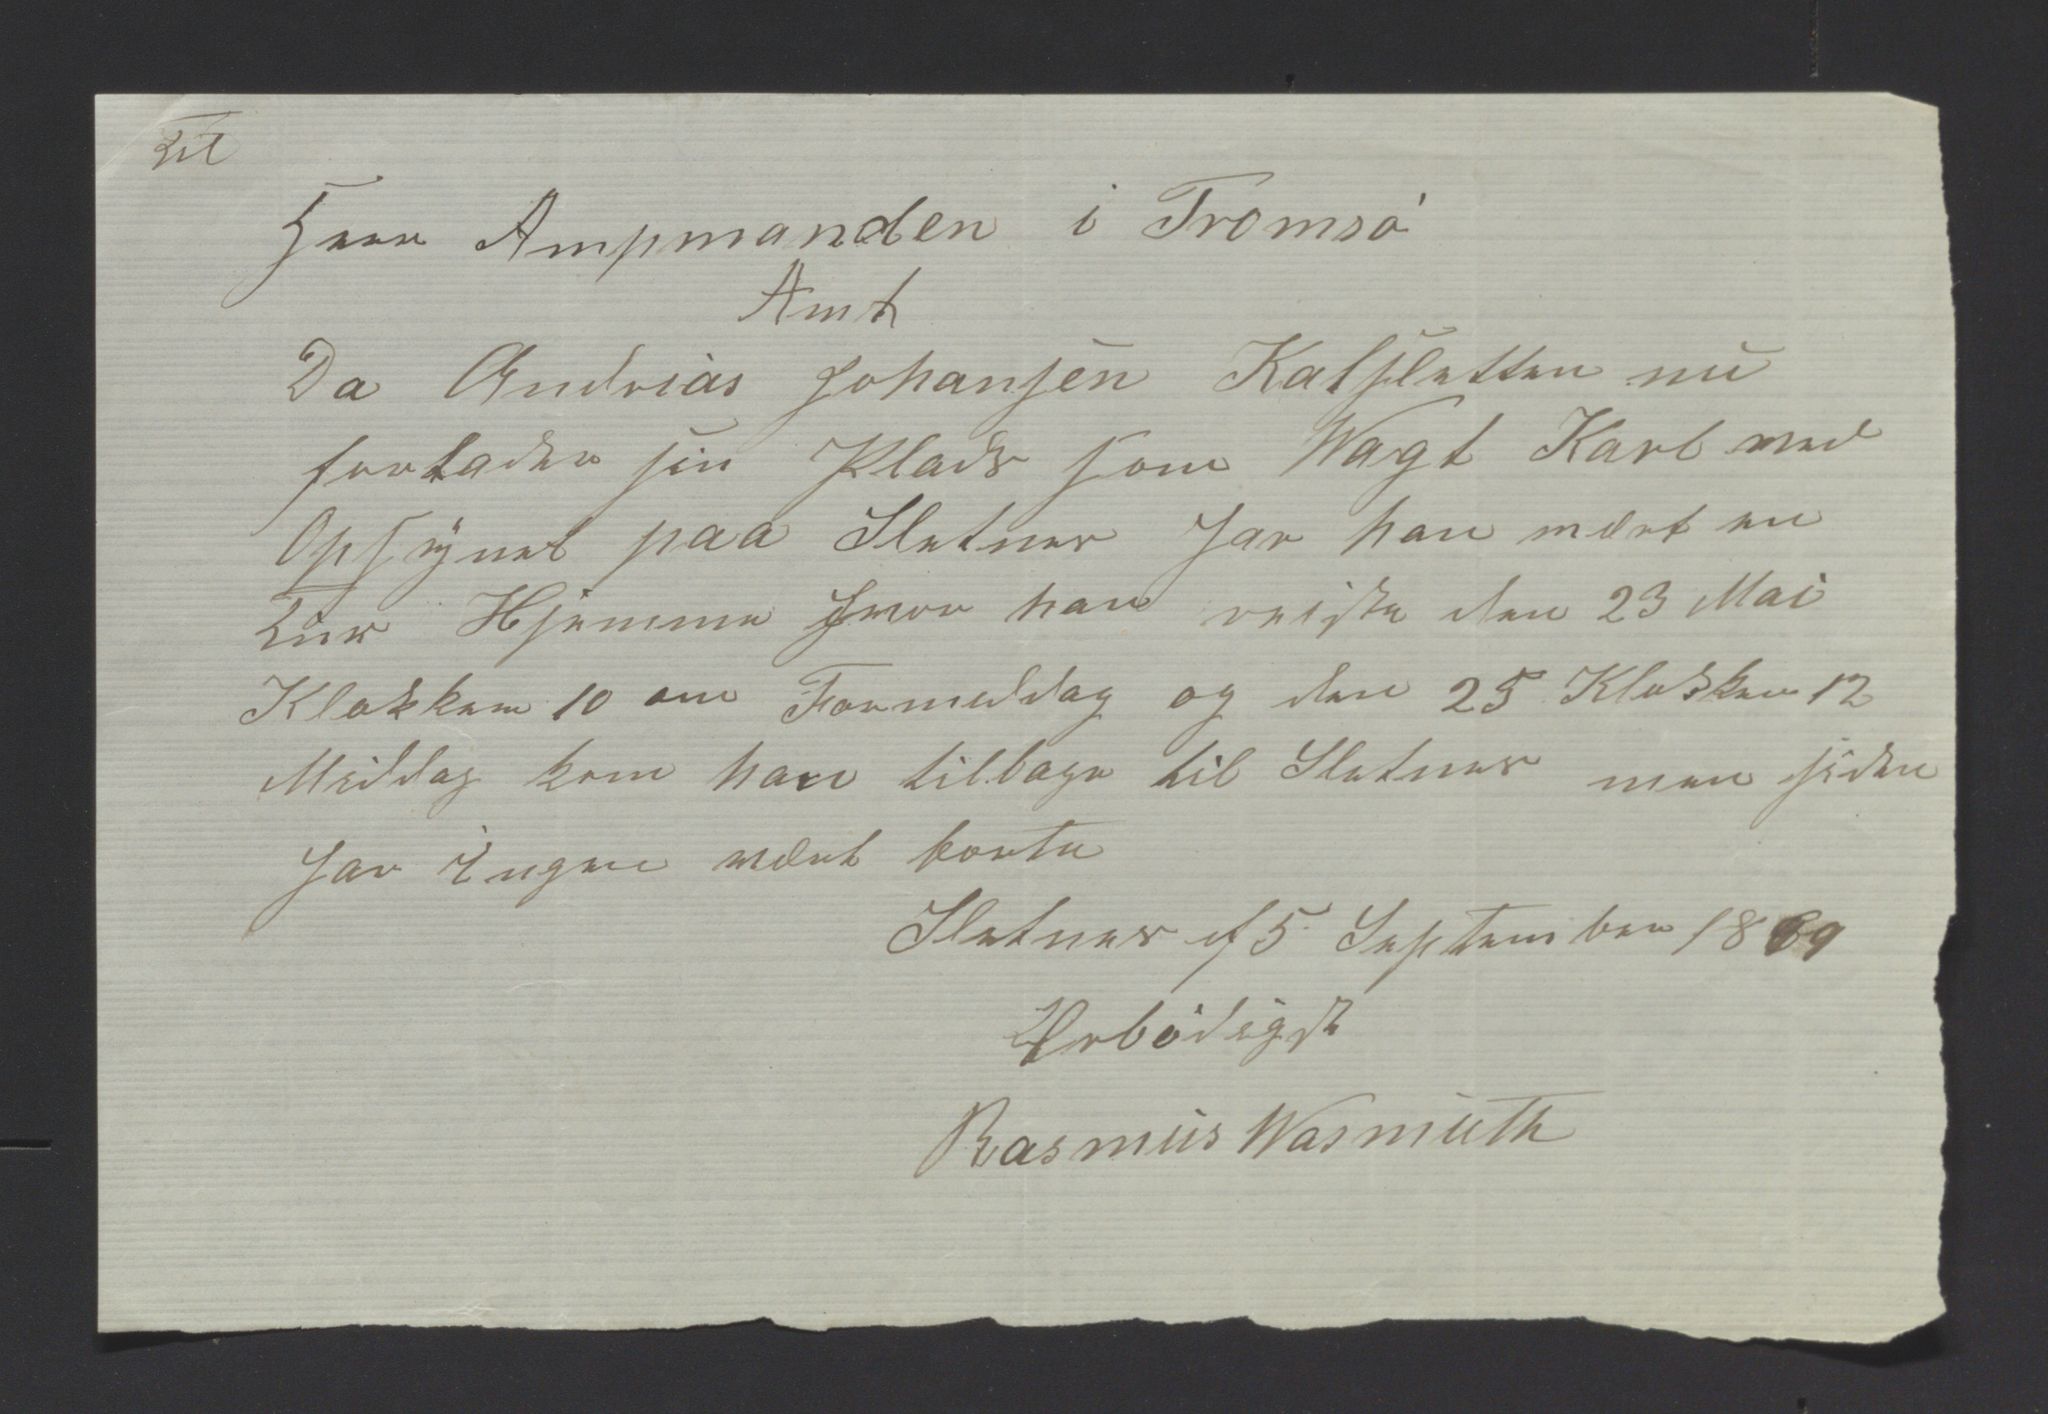 Til
Herr Ampmanden i Tromsö
Amt
Da Andrias Johansen Kalsletten nu
forlader sin Plads som Wagt Karl ved
Opsynet paa Sletnes har han været en
Tur Hjemme hvor han reiste den 23 Mai
Klokken 10 om Formiddag og den 25 Klokken 12
Middag kom han tilbage til Sletnes men siden
har Ingen været borte
Sletnes d 5 September 1889
Ærbödigst
Rasmus Wasmuth